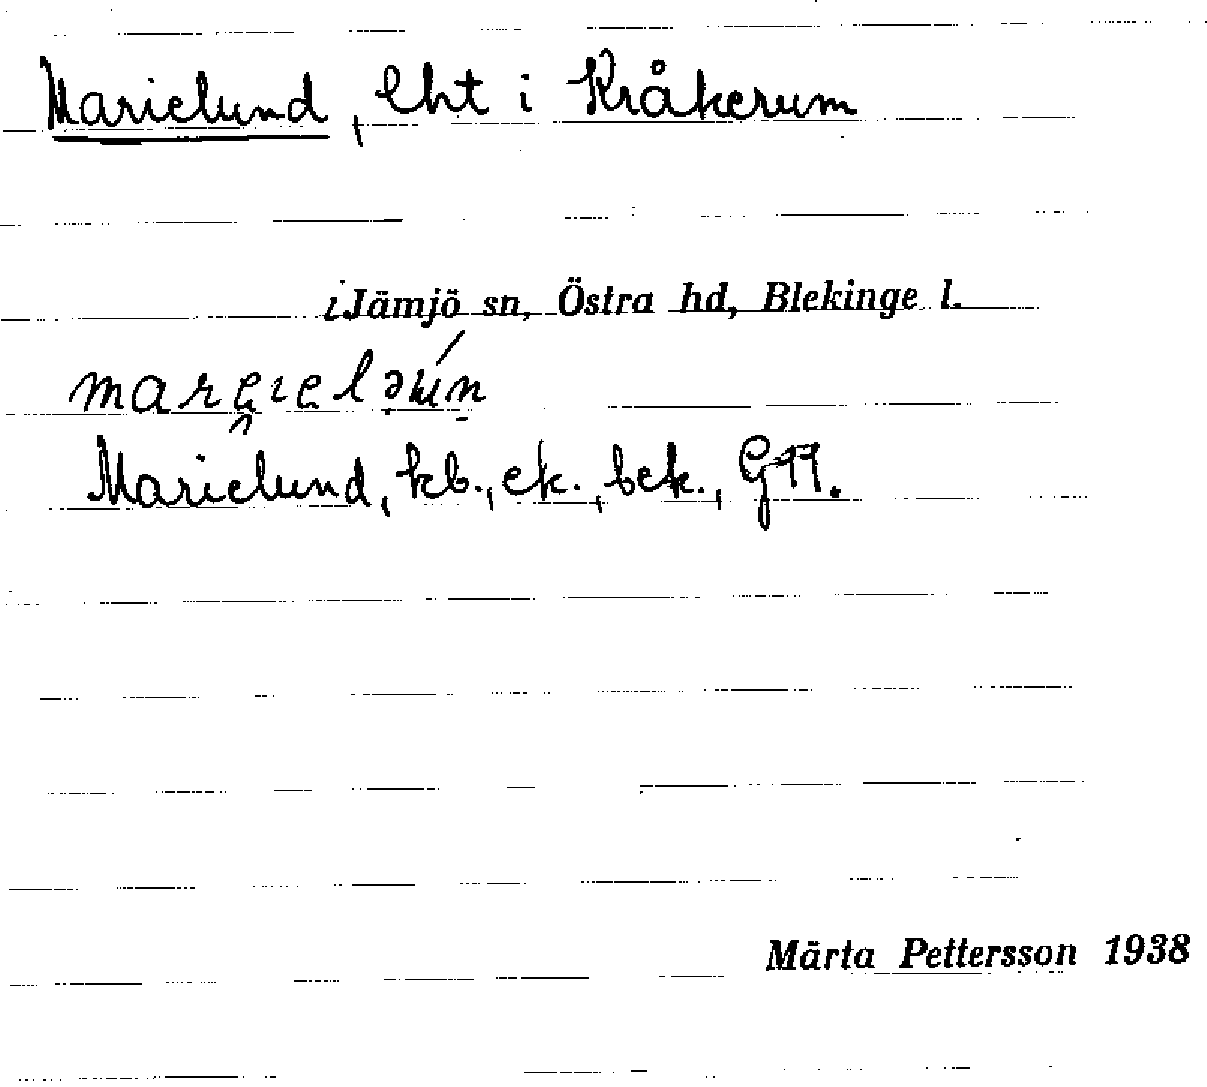 Marielund, lht i Kråkerum
i Jämjö sn, Östra hd, Blekinge l.
Marielund, kb., ek., bek., G99.
Märta Pettersson 1938